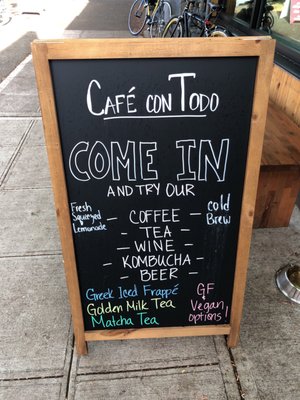 CAFÉ CON TODO
COME IN
AND TRY OUR
Fresh
Squeezed
Lemonade
- COFFEE -
- TEA -
- WINE -
- KOMBUCHA -
- BEER -
cold
Brew
Greek Iced Frappé
Golden Milk Tea
Matcha Tea
GF
+
Vegan
options!